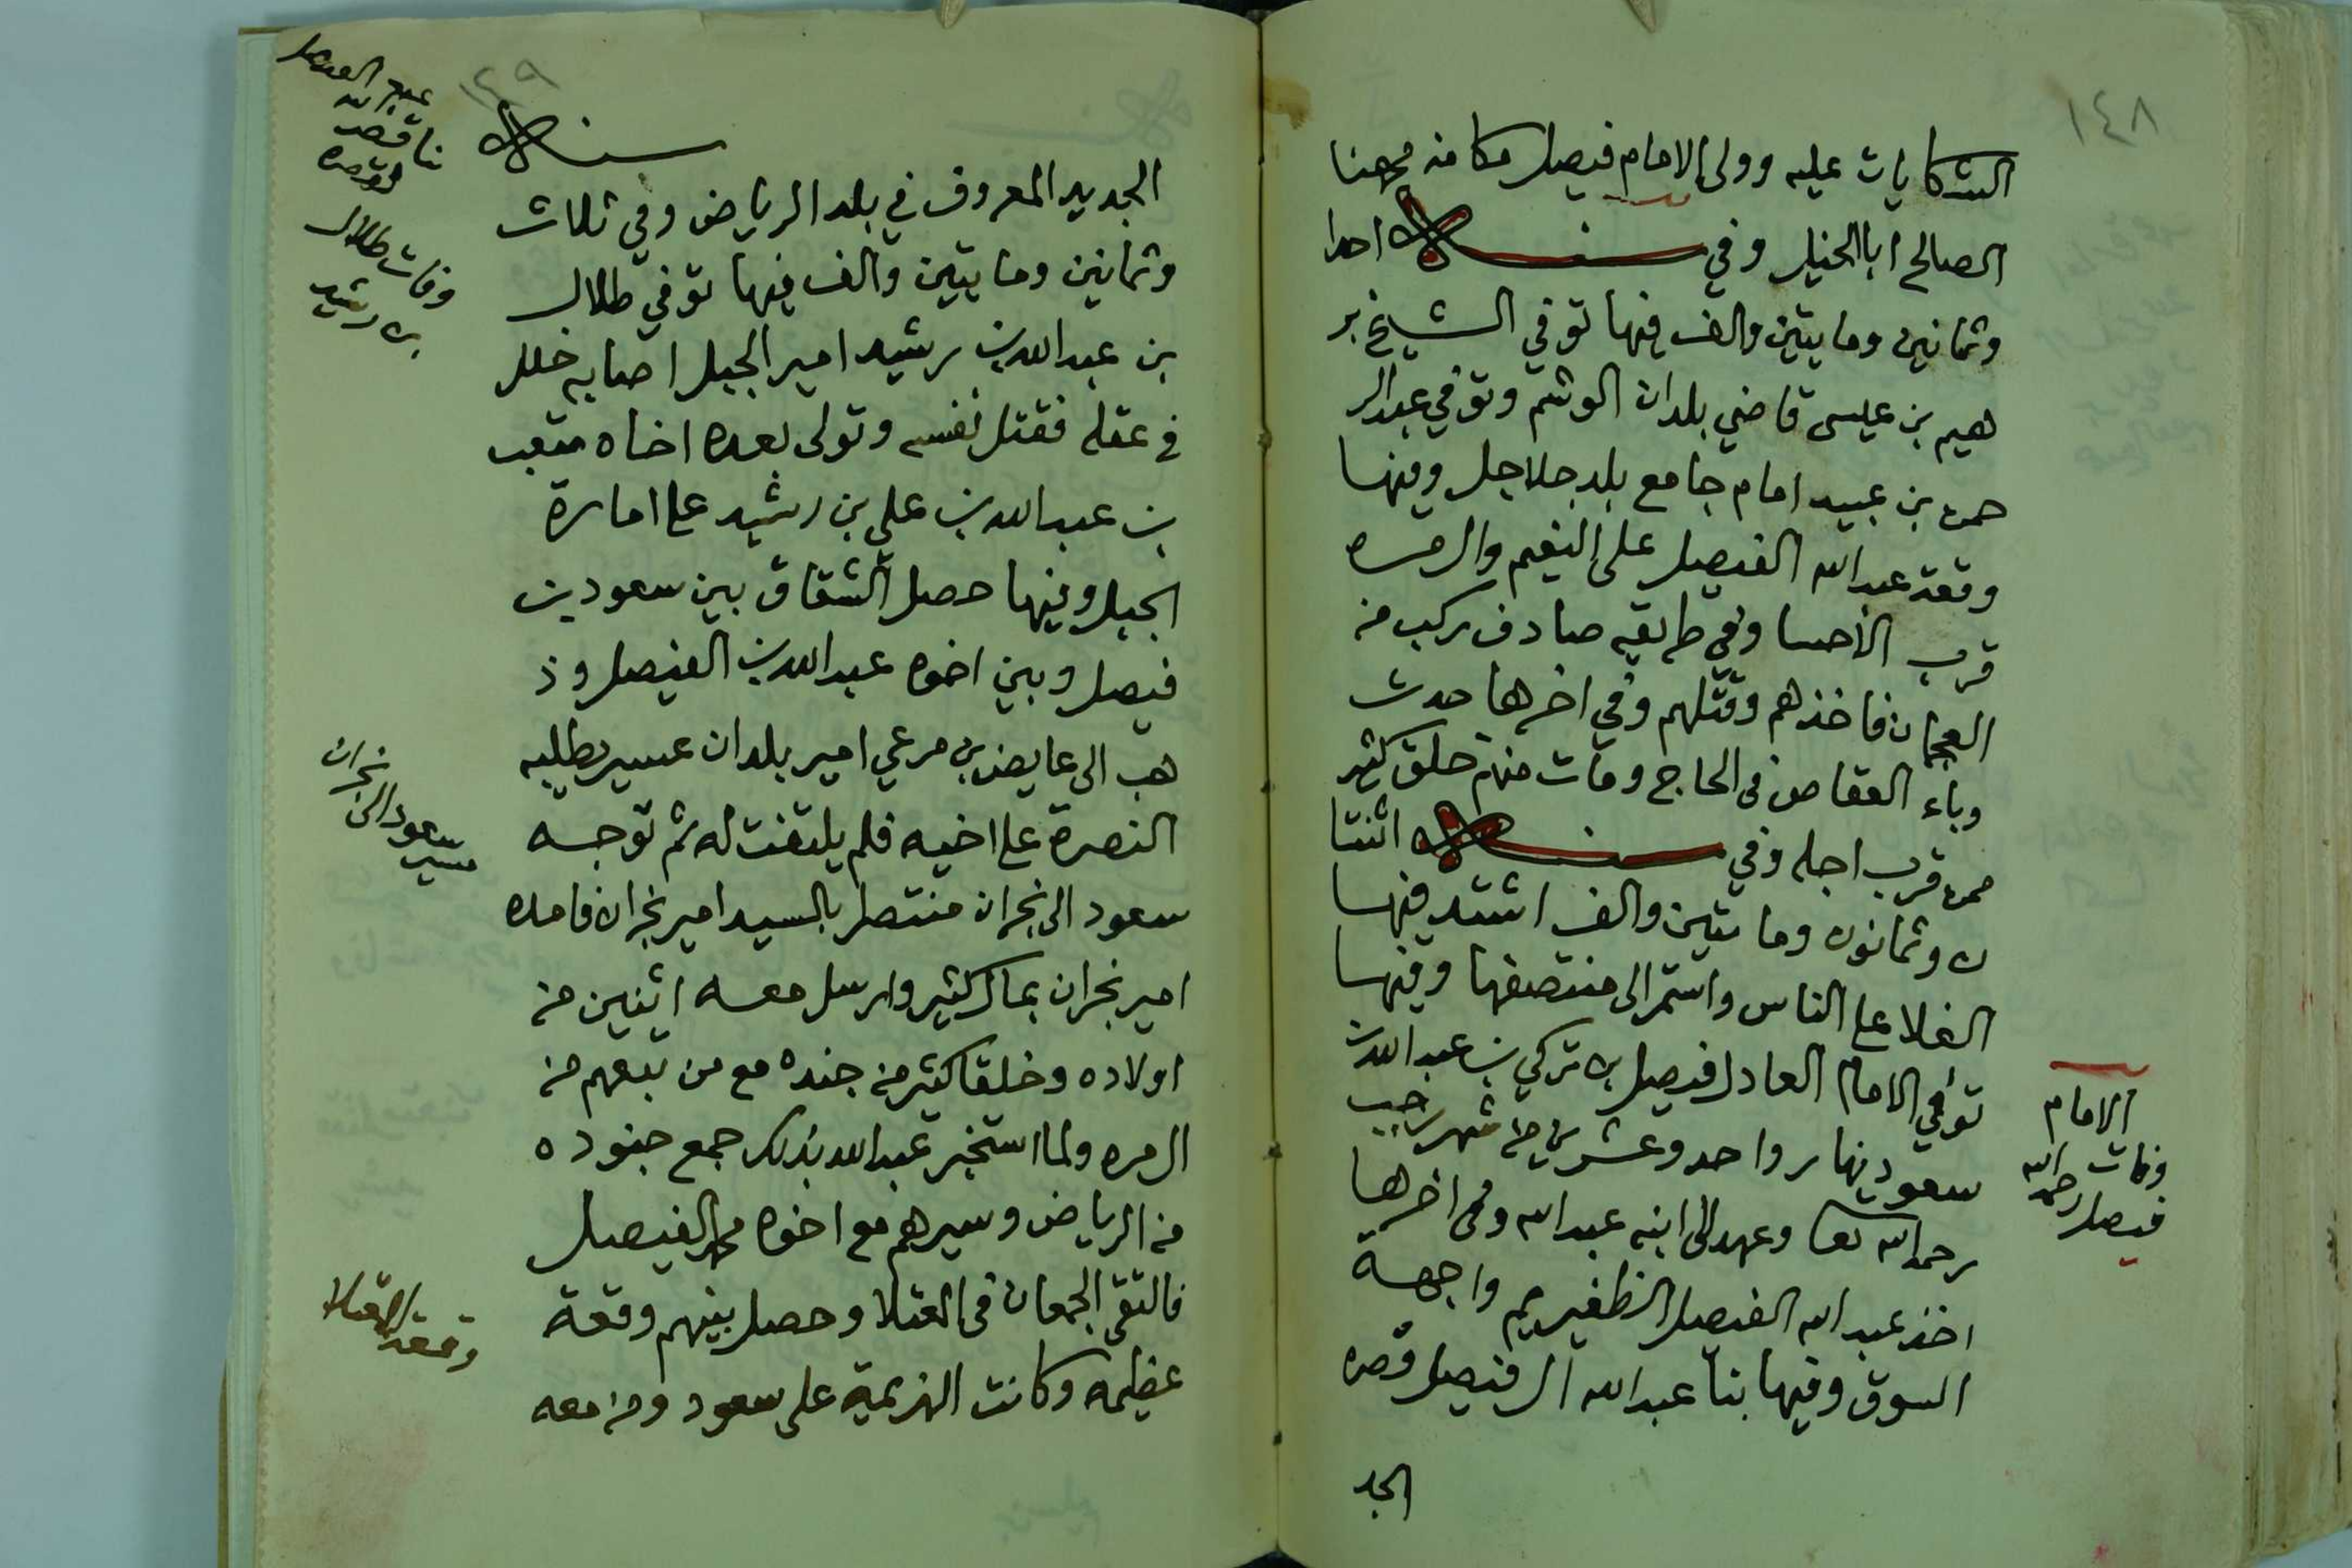 ١٤٨
الشكايات عليه وولى الامام فيصل مكانه مهنا
الصالح ابا الخيل وفي سنة احدا
وثمانين ومايتين والف فيها توفي الشيخ بر
هيم بن عيسى قاضي بلدان الوشم وتوفي عبد الر
حمن بن عبيد امام جامع بلد جلاجل وفيها
وقعة عبد الله الفيصل على النعيم وال مره
قرب الاحسا وفي طريقه صادف ركب من
العجمان فاخذهم وقتلهم وفي اخرها حدث
وباء العقاص في الحاج ومات منهم خلق كثير
ممن قرب اجله وفي سنة اثنتا
ن وثمانون ومايتين والف اشتد فيها
الغلا على الناس واستمر الى منتصفها وفيها
توفي الامام العادل فيصل بن تركي بن عبد الله بن
سعود نهار واحد وعشرين من شهر رجب
رحمه الله تعا وعهد الى ابنه عبد الله وفي اخرها
اخذ عبد الله الفيصل الظفير يم واجهة
السوق وفيها بنا عبد الله ال فيصل قصره
الجد
الامام
وفات
فيصل رحمه الله
١٤٩
سنة
الجديد المعروف في بلد الرياض وفي ثلاث
وثمانين ومايتين والف فيها توفي طلال
بن عبد الله بن رشيد امير الجبل اصابه خلل
في عقله فقتل نفسه وتولى بعده اخاه متعب
بن عبد الله بن علي بن رشيد على امارة
الجبل وفيها حصل الشقاق بين سعود بن
فيصل وبين اخوه عبد الله بن الفيصل وذ
هب الى عايض بن مرعي امير بلدان عسير يطلبه
النصرة على اخيه فلم يلتفت له ثم توجه
سعود الى نجران منتصل بالسيد امير نجران فامده
امير نجران بمال كثير وارسل معه اثنين من
اولاده وخلقا كثير من جنده مع من تبعهم من
ال مره ولما استخبر عبد الله بذلك جمع جنوده
من الرياض وسيرهم مع اخوه محمد الفيصل
فالتقى الجمعان في المعتلا وحصل بينهم وقعة
عظيمه وكانت الهزيمة على سعود ومن معه
عبد الله الفيصل
بنا قصر
وفات طلال
بن رشيد
مسير
سعود الى نجران
وقعة المعتلا